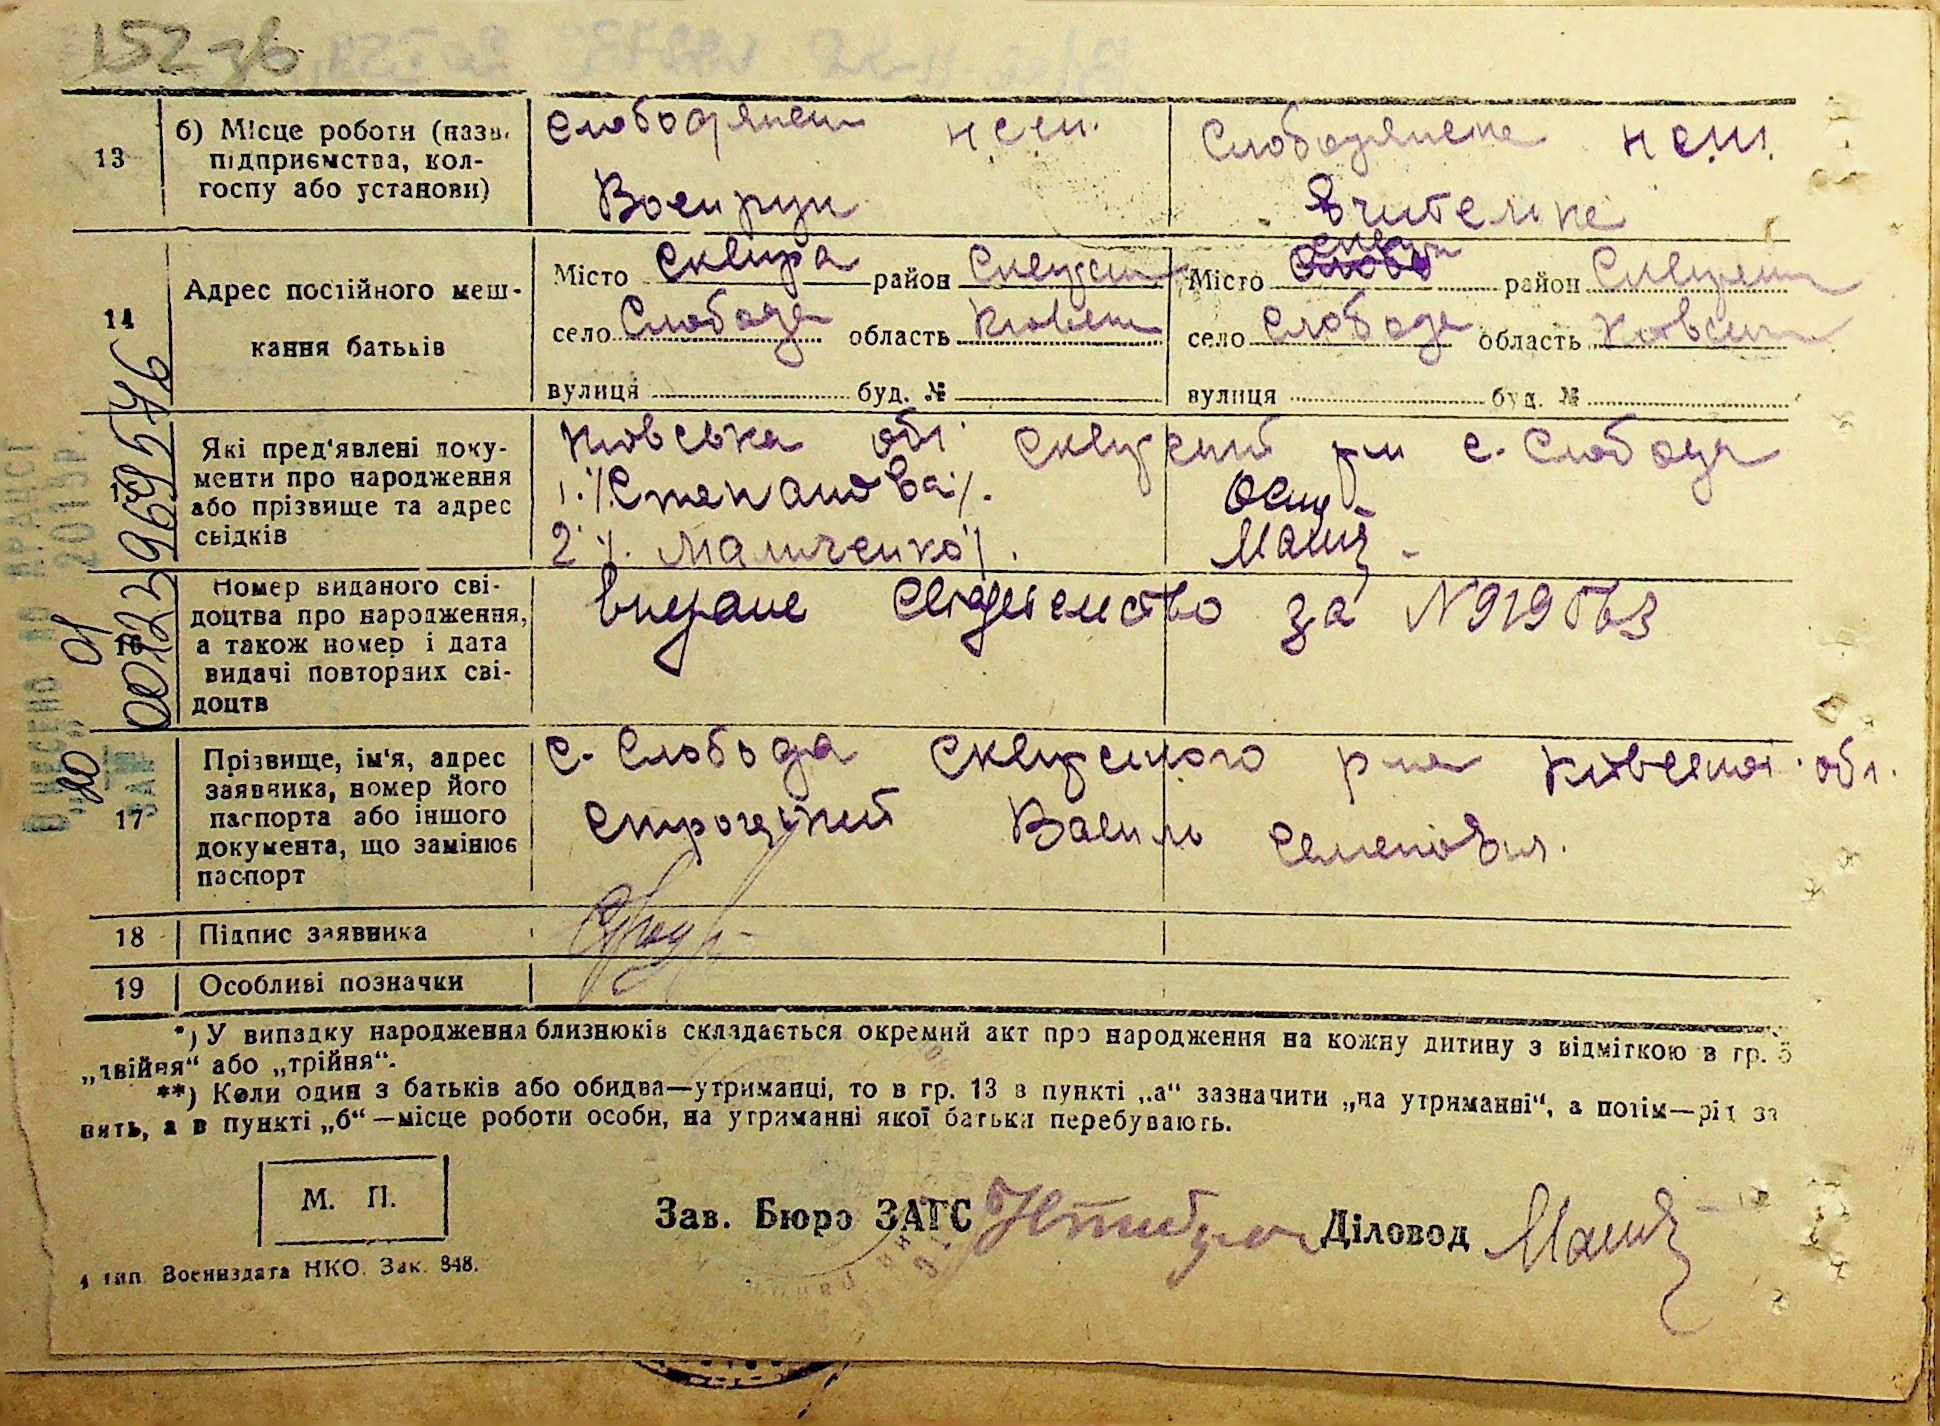 152 зв
13
б) Місце роботи (назв.
підприємства, кол-
госпу або установи)
Слободянськ НСШ.
Воєнрук
Слободянська НСШ.
Вчителька
14
Адрес постійного меш-
кання батьків
Місто Сквира район Сквирськ
село Слобода область Київськ
вулиця буд. №
Місто Сквира район Сквирськ
село Слобода область Київськ
вулиця буд. №
Які пред'явлені доку-
менти про народження
або прізвище та адрес
свідків
Київська обл. Сквирський р-н с. Слобода
1. /Степанова/.
2 /. Маличенко/.
16
Номер виданого сві-
доцтва про народження,
а також номер і дата
видачі повторних сві-
доцтв
видане свидетельство за №919563
17
Прізвище, ім'я, адрес
заявника, номер його
паспорта або іншого
документа, що замінює
паспорт
с. Слобода Сквирського р-на Київської обл.
Василь Семенович.
18
Підпис заявника
19
Особливі позначки
00122969576
2013р.
*) У випадку народження близнюків складається окремий акт про народження на кожну дитину з відміткою в гр. 5
„двійня“ або „трійня“.
**) Коли один з батьків або обидва—утриманці, то в гр. 13 в пункті „а“ зазначити „на утриманні“, а потім—рід за
нять, а в пункті „б“—місце роботи особи, на утриманні якої батьки перебувають.
М. П.
Зав. Бюро ЗАГС
Діловод
4 тип. Воениздата НКО. Зак. 848.